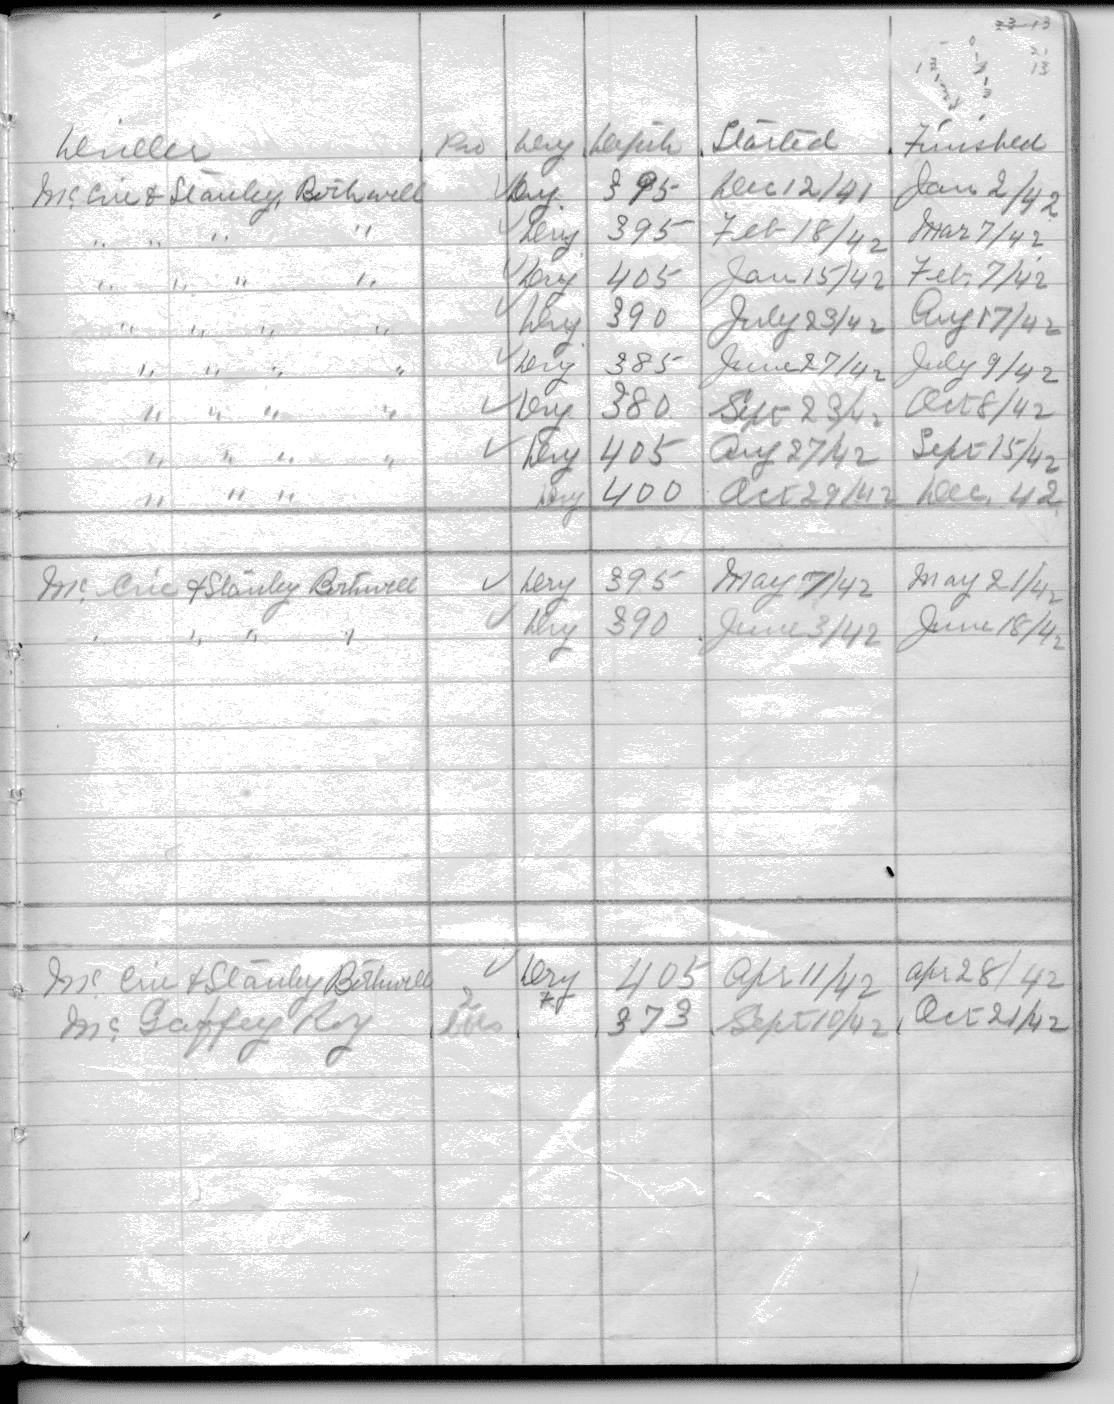 33-13
21
13
Driller Pro Dry Depth Started Finished
Mc Crie & Stanley, Bothwell ✓ Dry. 395 Dec 12/41 Jan 2/42
" " " " ✓ Dry 395 Feb 18/42 Mar 7/42
" " " " ✓ Dry 405 Jan 15/42 Feb. 7/42
" " " " ✓ Dry 390 July 23/42 Aug 17/42
" " " " ✓ Dry 385 June 27/42 July 9/42
" " " " ✓ Dry 380 Sept 23/42 Oct 8/42
" " " " ✓ Dry 405 Aug 27/42 Sept 15/42
" " " Dry 400 Oct 29/42 Dec. 42
Mc Crie & Stanley Bothwell ✓ Dry 395 May 7/42 May 21/42
" " " " ✓ Dry 390 June 3/42 June 18/42
Mc Crie & Stanley Bothwell ✓ Dry 405 Apr 11/42 Apr 28/42
Mc Gaffey Roy 373 Sept 10/42 Oct 21/42